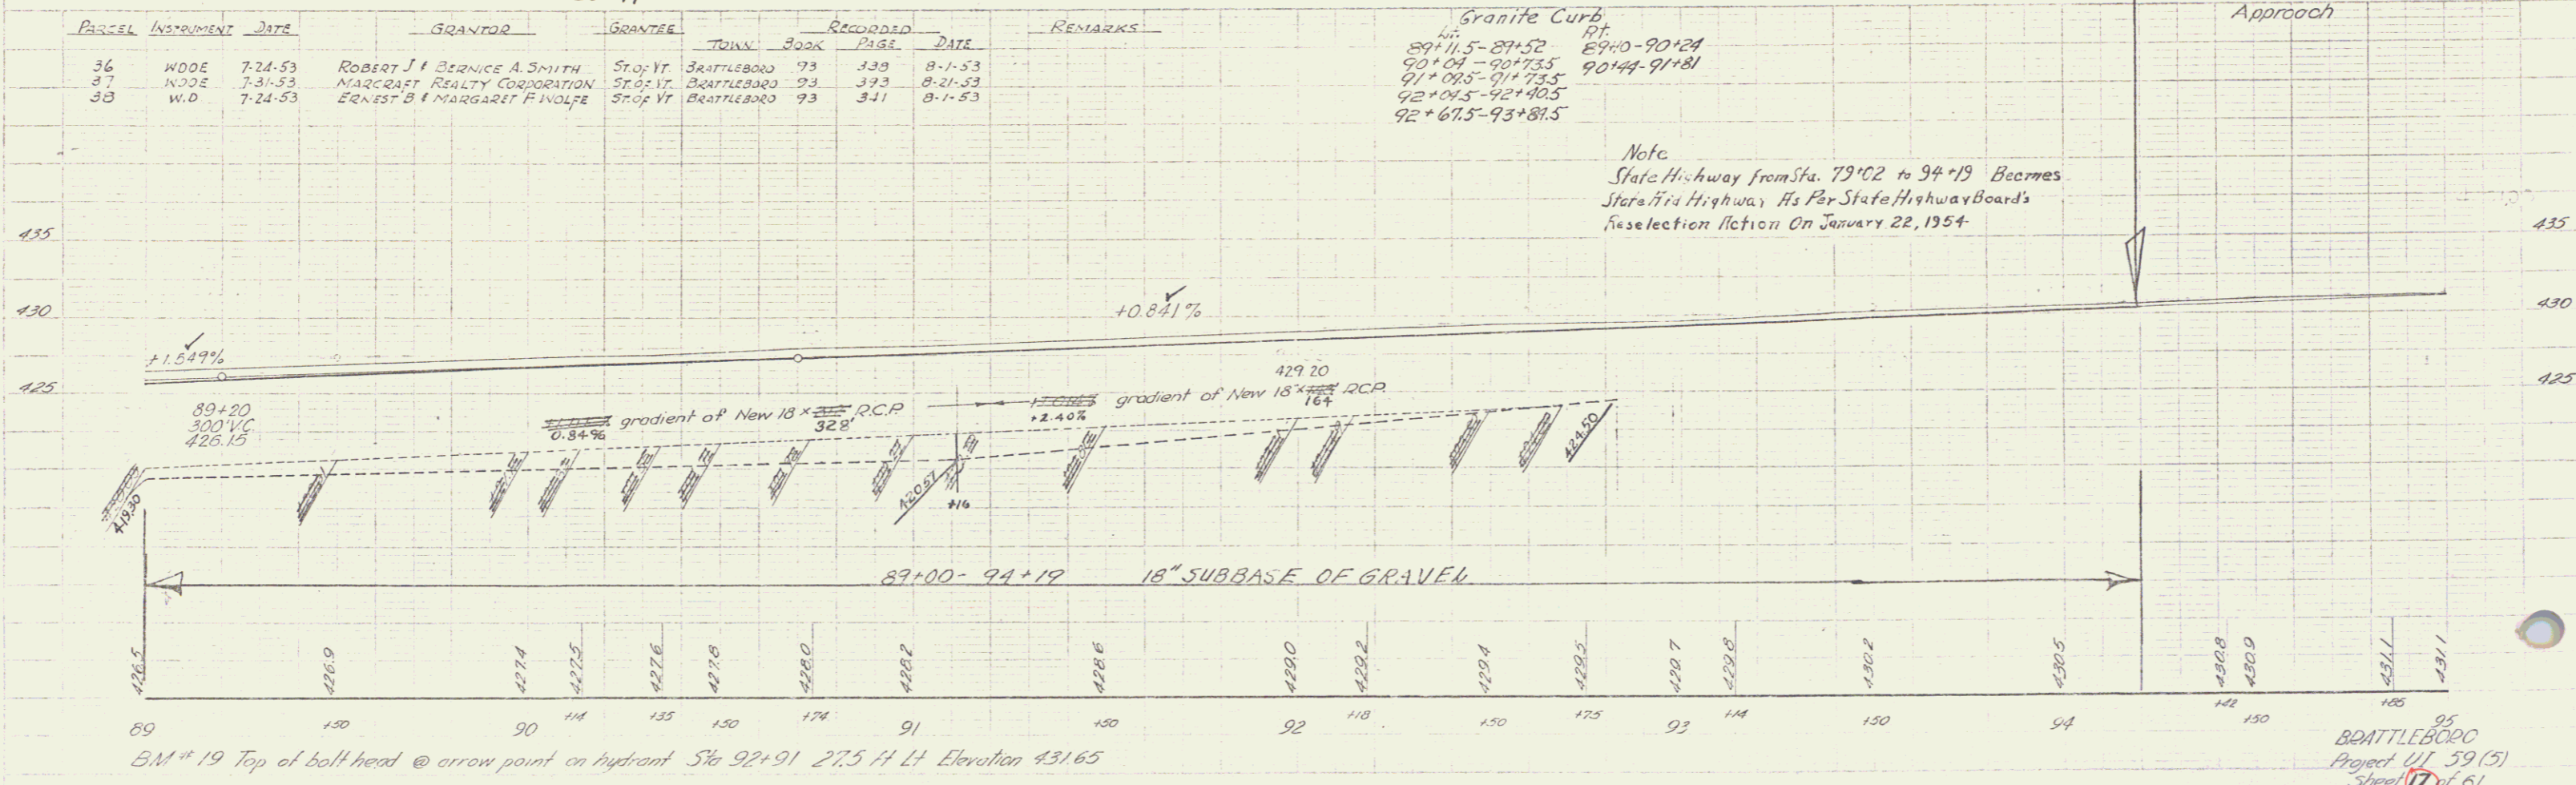 PARCEL INSTRUMENT DATE GRANTOR GRANTEE RECORDED REMARKS
TOWN BOOK PAGE DATE
36 WDOE 7-24-53 ROBERT J & BERNICE A. SMITH ST. OF VT. BRATTLEBORO 93 339 8-1-53
37 WDOE 7-31-53 MARCRAFT REALTY CORPORATION ST. OF VT. BRATTLEBORO 93 393 8-21-53
38 W.D 7-24-53 ERNEST B & MARGARET F WOLFE ST. OF VT BRATTLEBORO 93 341 8-1-53
Granite Curb
Lt. Rt.
89+11.5-89+52 89+10-90+24
90+04-90+73.5 90+44-91+81
91+09.5-91+73.5
92+04.5-92+40.5
92+67.5-93+89.5
Approach
Note
State Highway from Sta. 79+02 to 94+19 Becomes
State Aid Highway As Per State Highway Board's
Reselection Action On January 22, 1954
435 435
430 430
425 425
+1.549%
+0.841%
89+20
300' V.C.
426.15
429.20
gradient of New 18 x R.C.P.
0.84% 328'
gradient of New 18" x R.C.P.
+2.40% 164
419.30
420.57
+16
424.50
89+00 - 94+19 18" SUBBASE OF GRAVEL
426.5 426.9 427.4 427.5 427.6 427.8 428.0 428.2 428.6 429.0 429.2 429.4 429.5 429.7 429.8 430.2 430.5 430.8 430.9 431.1 431.1
89 +50 90 +14 +35 +50 +74 91 +50 92 +18 +50 +75 93 +14 +50 94 +42 +50 +85 95
BM # 19 Top of bolt head @ arrow point on hydrant Sta 92+91 27.5 ft Lt Elevation 431.65
BRATTLEBORO
Project UI 59 (5)
Sheet 17 of 61